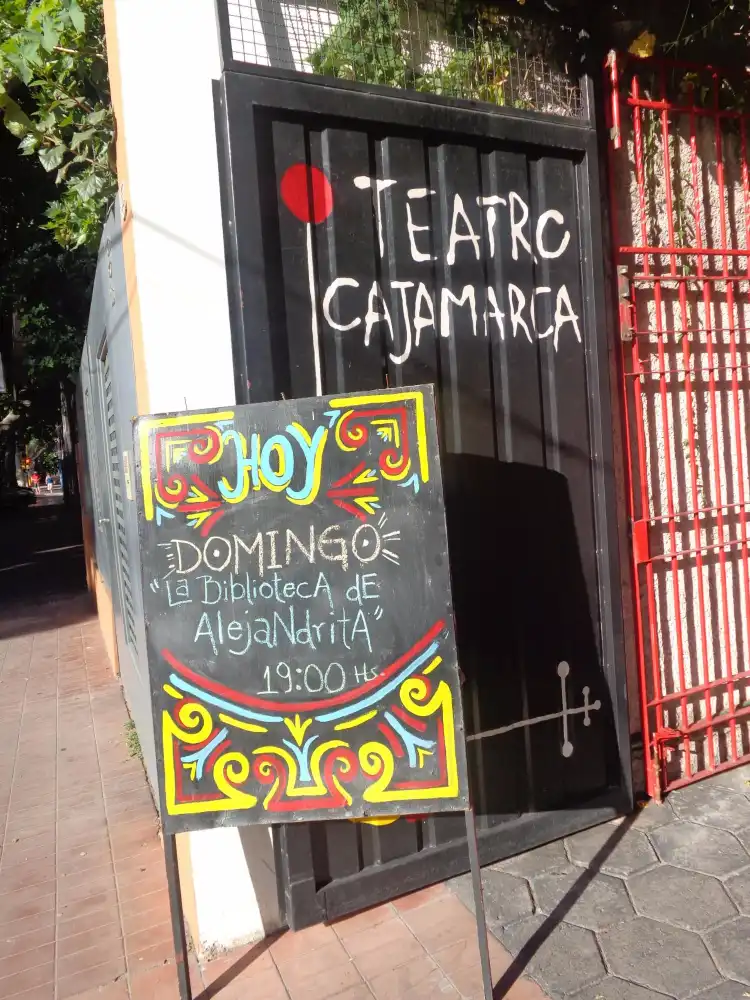 TEATRO
CAJAMARCA
HOY
DOMINGO
"La BibliotecA dE
AlejaNdritA"
19:00 Hs.